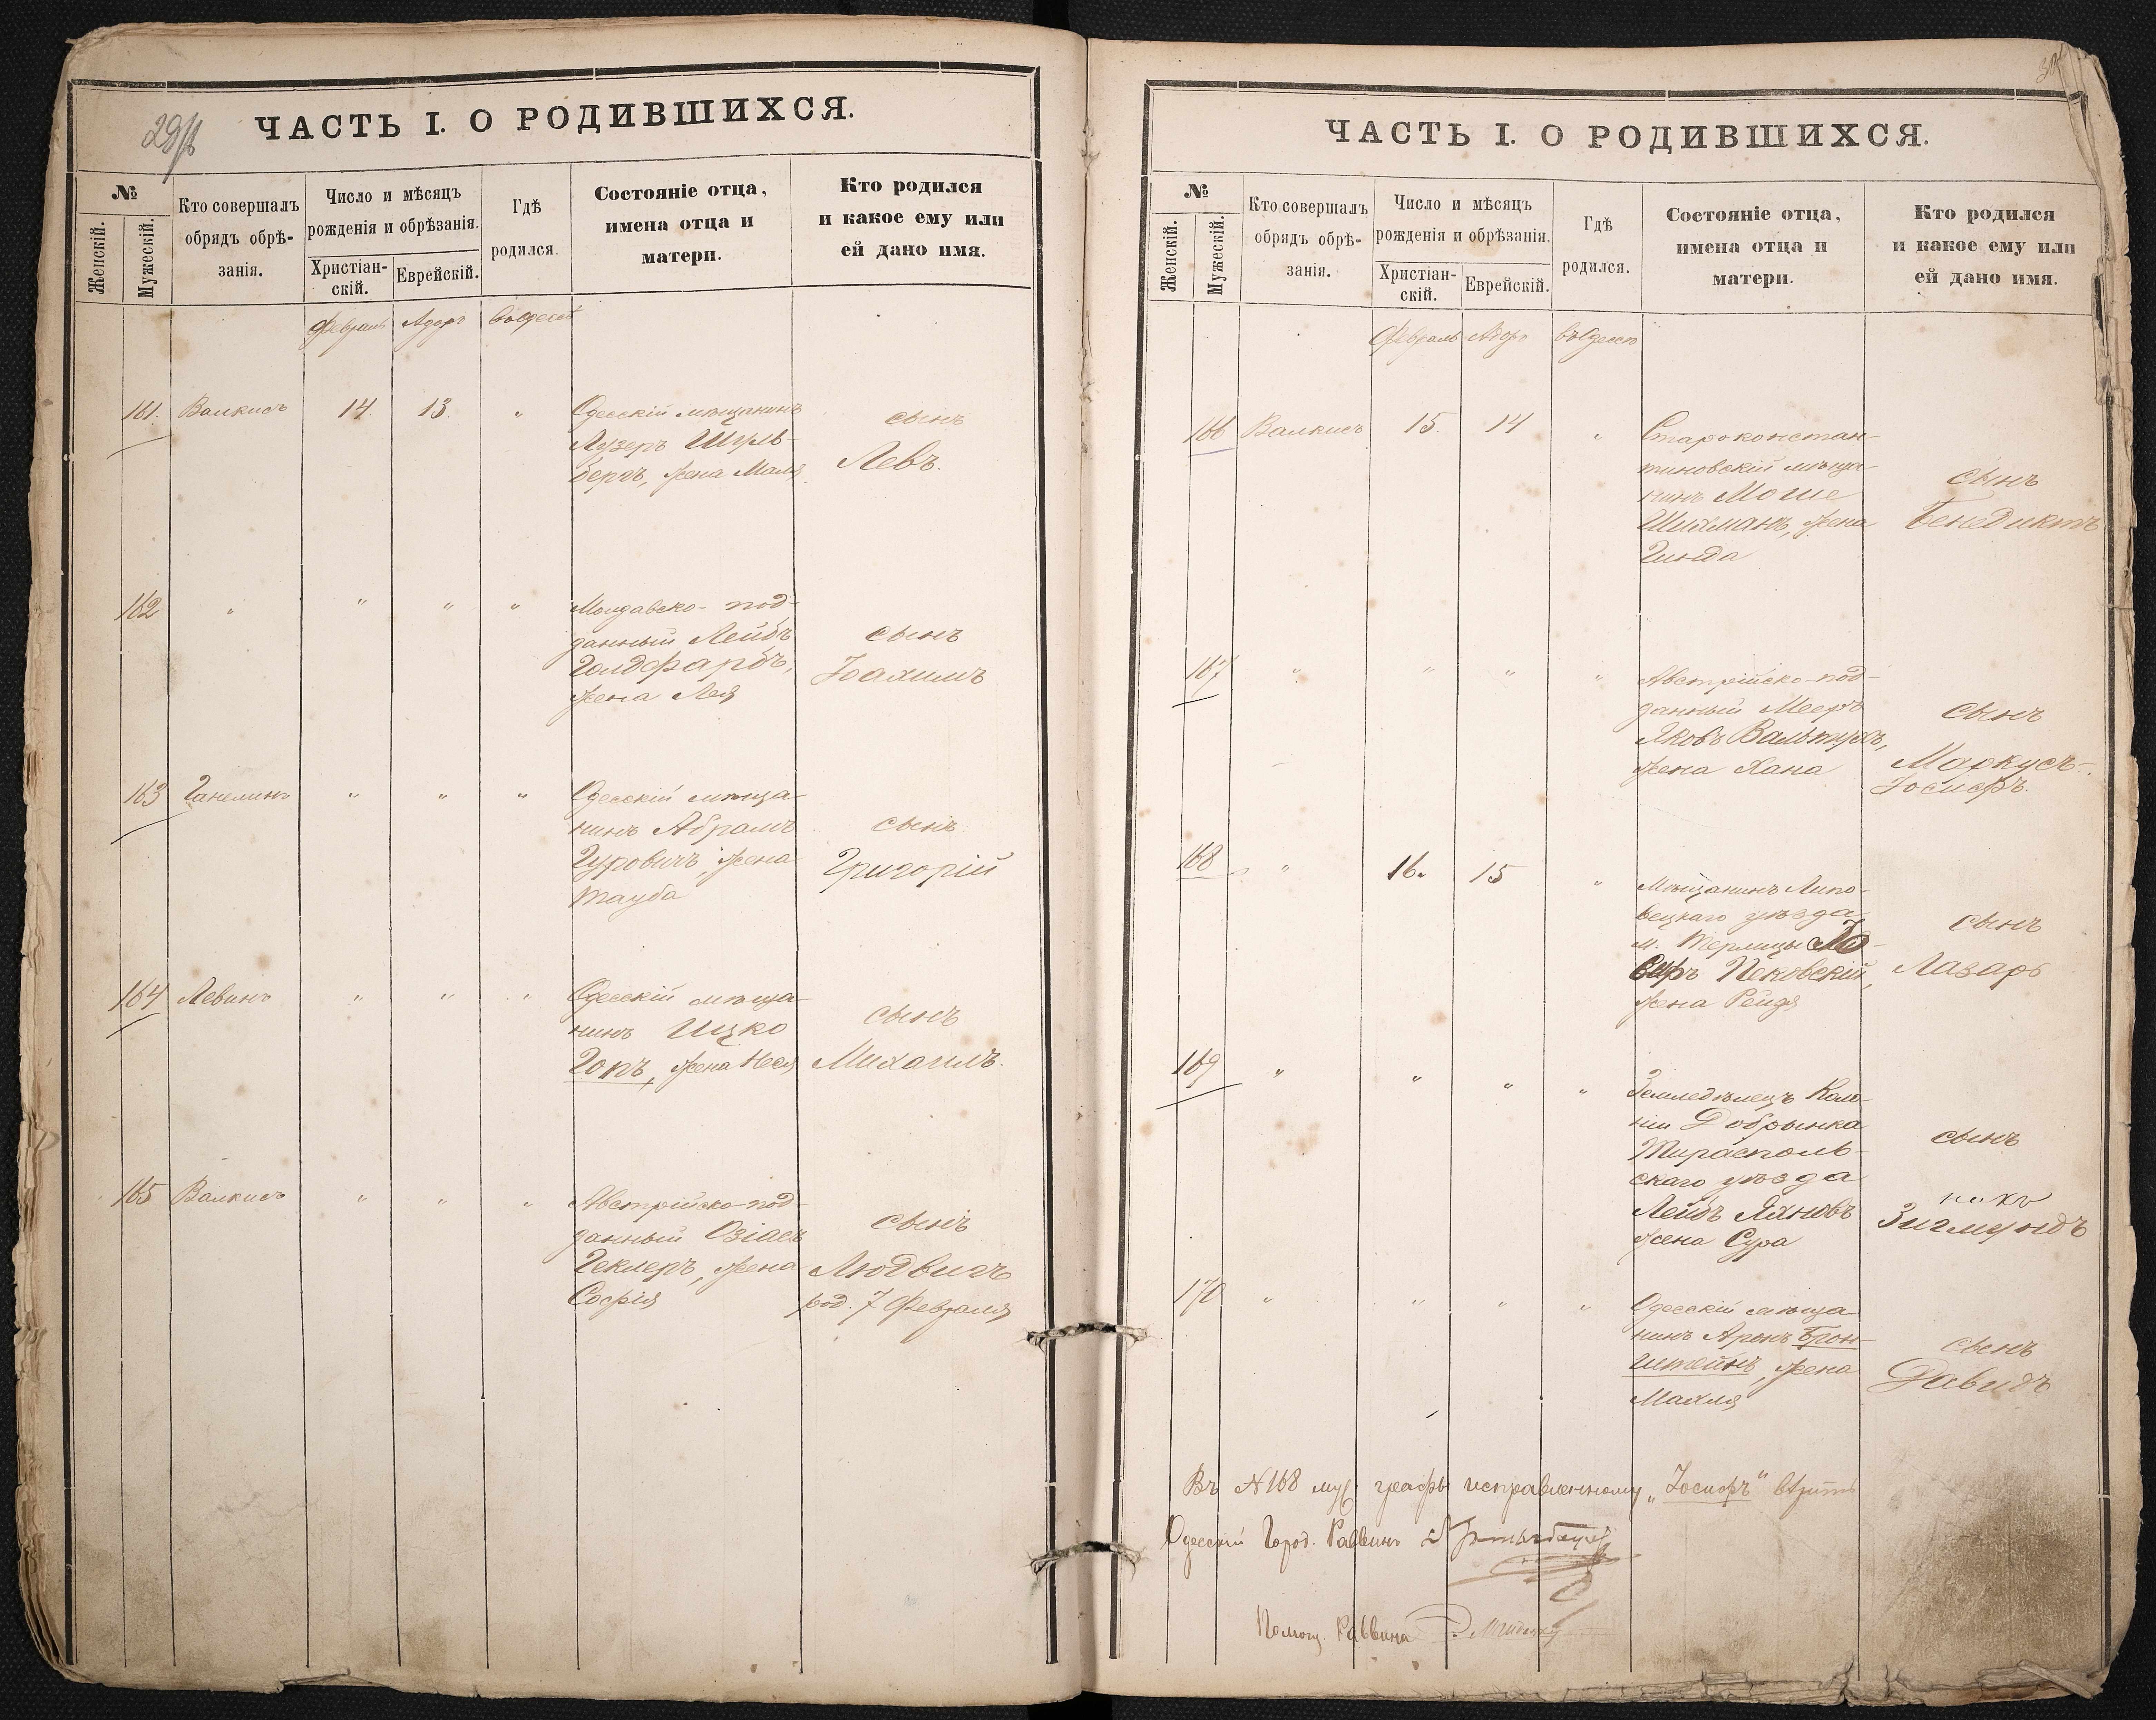 29/б
ЧАСТЬ I. О РОДИВШИХСЯ.
№
Женскій.
Мужескій.
Кто совершалъ
обрядъ обрѣ-
занія.
Число и мѣсяцъ
рожденія и обрѣзанія.
Христіан-
скій.
Еврейскій.
Гдѣ
родился.
Состояніе отца,
имена отца и
матери.
Кто родился
и какое ему или
ей дано имя.
Февраль Адоръ въ Одессѣ
161. Валкисъ 14. 13. "
Одесскій мѣщанинъ
Лузеръ Шуль-
бергъ, жена Маля
сынъ
Левъ.
162 " " " "
Молдавско-под-
данный Лейбъ
Голдфарбъ,
жена Лея
сынъ
Іоахимъ
163 Ганелинъ " " "
Одесскій мѣща-
нинъ Абрамъ
Гуровичъ, жена
Тауба
сынъ
Григорій
164 Левинъ " " "
Одесскій мѣща-
нинъ Ицко
Горъ, жена Неся
сынъ
Михаилъ.
165 Валкисъ " " "
Австрійско-под-
данный Озіасъ
Геклеръ, жена
Софія
сынъ
Людвигъ
род. 7 Февраля
ЧАСТЬ I. О РОДИВШИХСЯ.
№
Женскій.
Мужескій.
Кто совершалъ
обрядъ обрѣ-
занія.
Число и мѣсяцъ
рожденія и обрѣзанія.
Христіан-
скій.
Еврейскій.
Гдѣ
родился.
Состояніе отца,
имена отца и
матери.
Кто родился
и какое ему или
ей дано имя.
Февраль Адоръ въ Одессѣ
166 Валкисъ 15. 14 "
Староконстан-
тиновскій мѣща-
нинъ Моше
Шихманъ, жена
Гинда
сынъ
Бенедиктъ
167 " " " "
Австрійско-под-
данный Мееръ
Яковъ Вальтухъ,
жена Хана
сынъ
Маркусъ-
Іосифъ.
168 " 16. 15 "
Мѣщанинъ Липо-
вецкаго уѣзда
м. Терлицы Іо-
сифъ Пековскій,
жена Рейзя
сынъ
Лазарь
169 " " " "
Земледѣлецъ Коло-
ніи Добрянка
Тираспольь-
скаго уѣзда
Лейбъ Яхновъ
жена Сура
сынъ
Зигмундъ
170 " " " "
Одесскій мѣща-
нинъ Аронъ Брон-
штейнъ, жена
Махля
сынъ
Давидъ
Въ №168 муж. графы исправленному „Іосифъ" вѣрить
Одесскій Город. Раввинъ
Помощ. Раввина